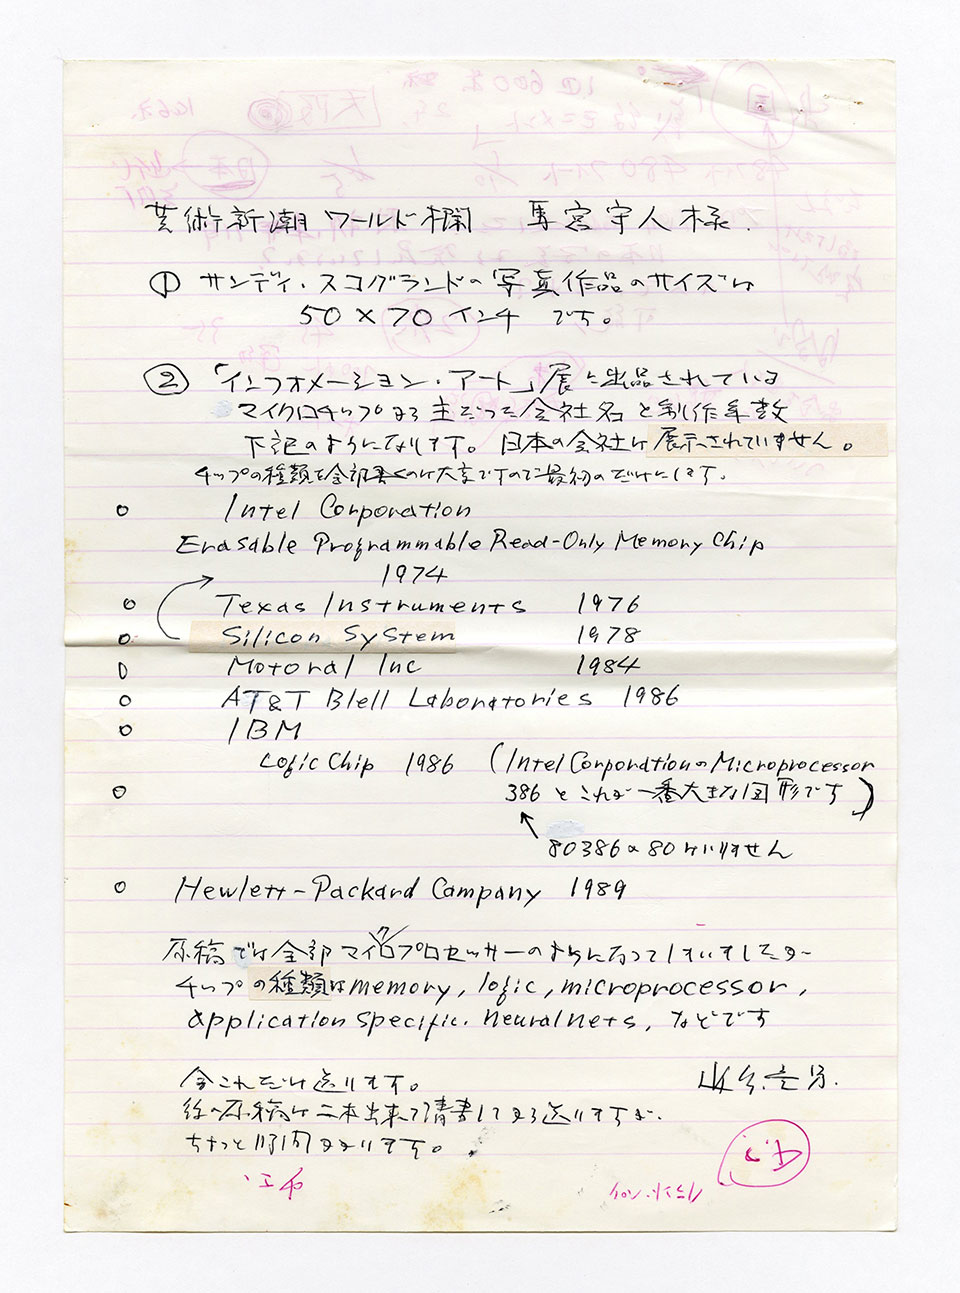 芸術新潮 ワールド欄 馬宮守人様.
① サンディ・スコグランドの写真作品のサイズは
50 × 70 インチ です。
② 「インフォメーション・アート」展に出品されている
マイクロチップなる主だった会社名と制作年数
下記のようになります。日本の会社は展示されていません。
チップの種類を全部書くのは大変ですので最初のだけにします.
○ Intel Corporation
Erasable Programmable Read-Only Memory Chip
1974
○ Texas Instruments 1976
○ Silicon System 1978
○ Motoral Inc 1984
○ AT&T Blell Laboratories 1986
○ IBM
Logic Chip 1986 (Intel CorporationのMicroprocessor
○ 386 とこれが一番大きな図形です)
80386の80はいりません
○ Hewlett-Packard Company 1989
原稿では全部マイクロプロセッサーのようになってしまいましたが
チップの種類はmemory, logic, microprocessor,
application specific. neural nets, などです
今これだけ送ります。
絵の原稿は二本出来て清書してから送りますが、
ちょっと時間かかります。